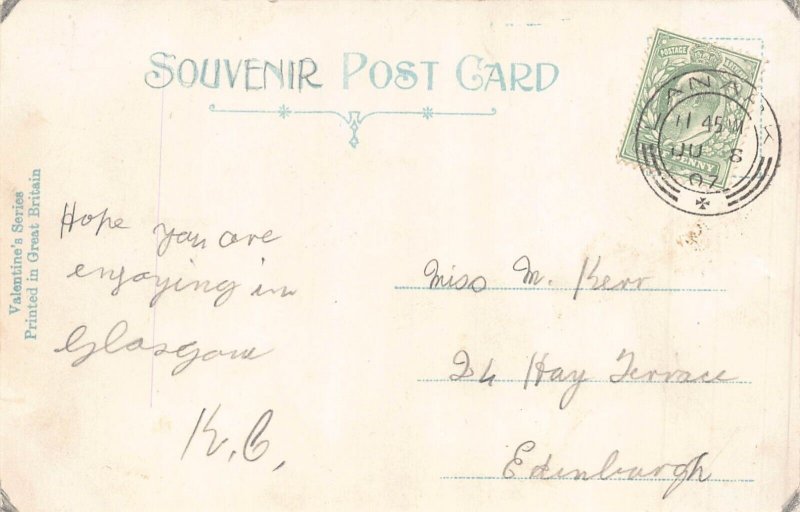 SOUVENIR POST CARD
POSTAGE
PENNY
LANARK
11 45 M
JU 8
07
Valentine's Series
Printed in Great Britain
Hope you are
enjoying in
Glasgow
K.C.
Miss M. Kerr
24 Hay Terrace
Edinburgh